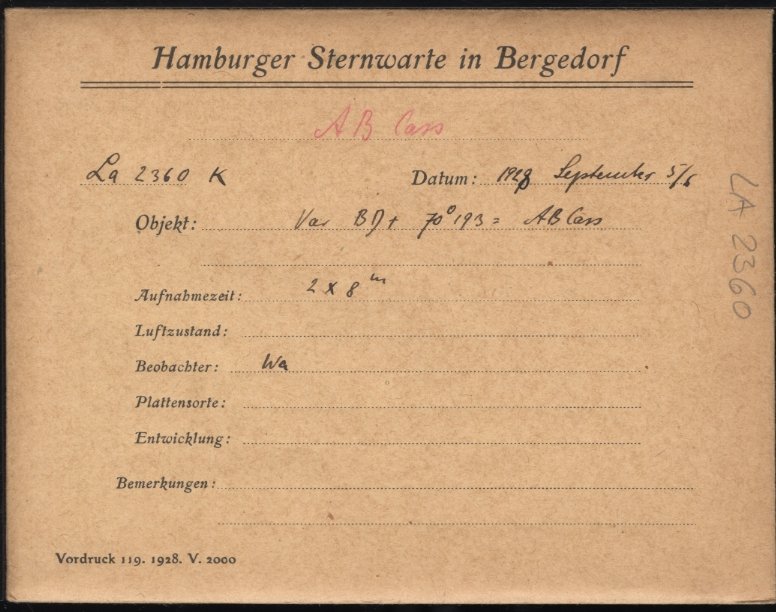 Hamburger Sternwarte in Bergedorf
AB Cass
La 2360 K Datum: 1928 September 5/6
Objekt: Var BD + 70° 193 = AB Cass
Aufnahmezeit: 2 x 8 m
Luftzustand:
Beobachter: Wa
Plattensorte:
Entwicklung:
Bemerkungen:
Vordruck 119. 1928. V. 2000
LA 2360